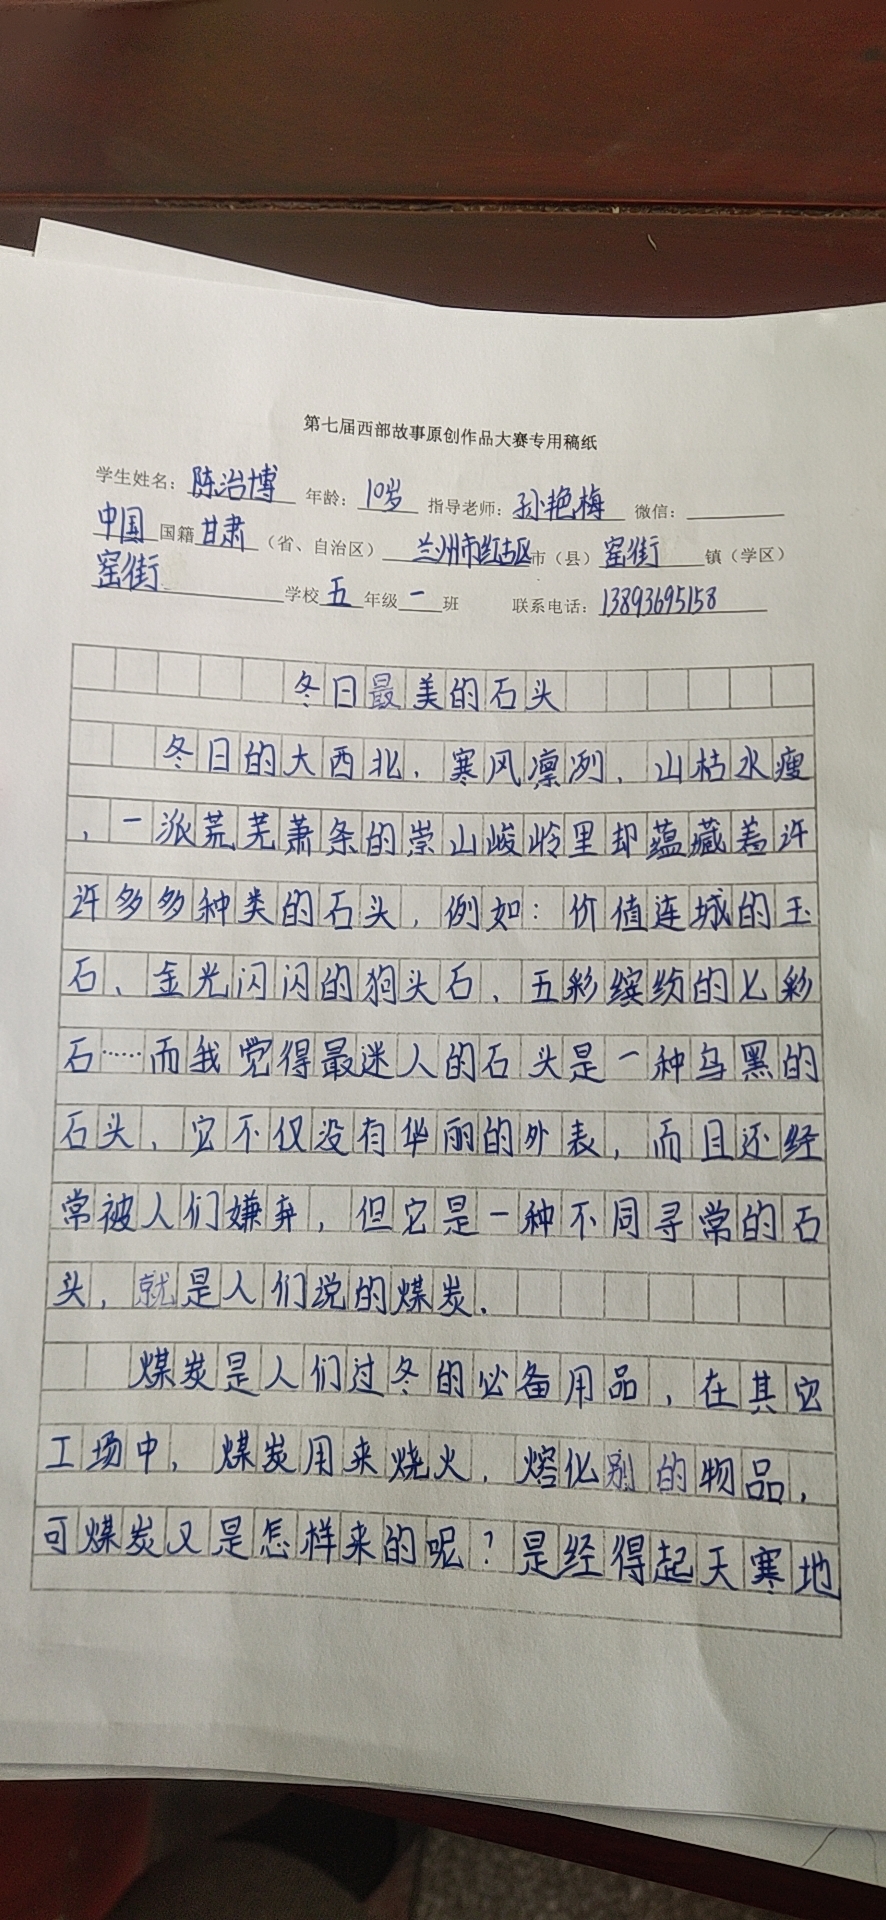 第七届西部故事原创作品大赛专用稿纸
学生姓名：陈治博 年龄：10岁 指导老师：孙艳梅 微信：
中国国籍甘肃（省、自治区）兰州市红古区市（县）窑街镇（学区）
窑街学校五年级一班 联系电话：13893695158
冬日最美的石头
冬日的大西北，寒风凛冽，山枯水瘦
，一派荒芜萧条的崇山峻岭里却蕴藏着许
许多多种类的石头，例如：价值连城的玉
石、金光闪闪的狗头石、五彩缤纷的七彩
石……而我觉得最迷人的石头是一种乌黑的
石头，它不仅没有华丽的外表，而且还经
常被人们嫌弃，但它是一种不同寻常的石
头，就是人们说的煤炭。
煤炭是人们过冬的必备用品，在其它
工场中，煤炭用来烧火，熔化别的物品，
可煤炭又是怎样来的呢？是经得起天寒地